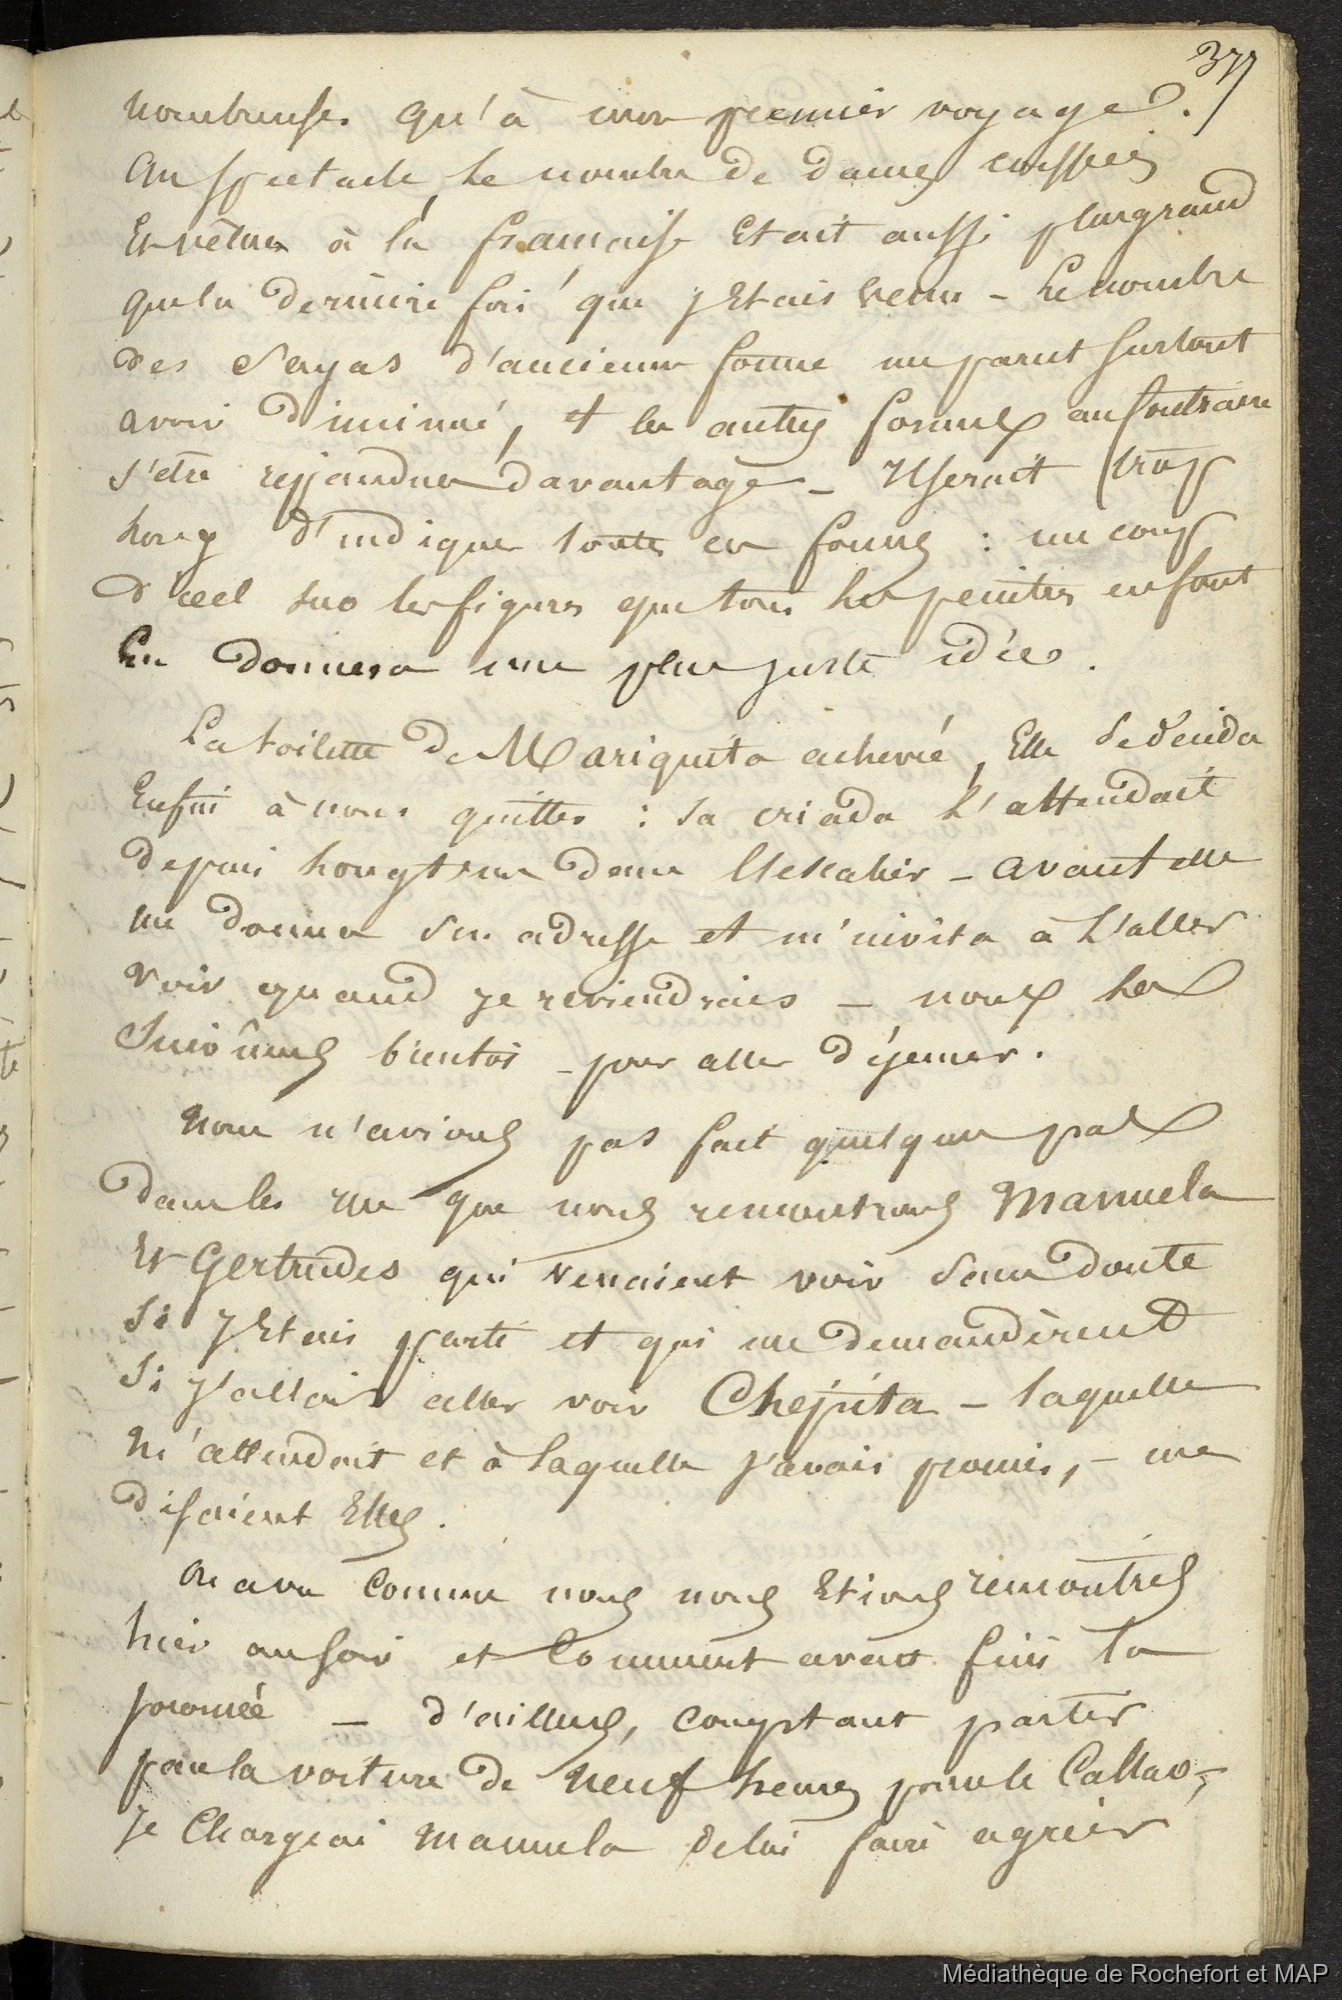 377
nombreuses qu'à mon premier voyage.
Au spectacle, le nombre de dames coiffées
Et vêtues à la française Etait aussi plus grand
que la dernière fois que j'Etais venu – Le nombre
des Sayas d'ancienne forme me parut surtout
avoir diminué, et les autres formes au contraire
s'être répandues davantage – Il serait trop
long d'indiquer toutes ces formes : un coup
d'œil sur les figures que tous les peintres en font
En donnera une plus juste idée.
La toilette de Mariquita achevée, Elle se décida
Enfin à nous quitter : sa criada l'attendait
depuis longtems dans l'Escalier – avant elle
me donna son adresse et m'invita à l'aller
voir quand je reviendrais – nous les
Suivîmes bientôt – pour aller déjeuner.
Nous n'avions pas fait quelques pas
dans les rue que nous rencontrons Manuela
Et Gertrudes qui venaient voir sans doute
si j'Etais parti et qui me demandèrent
si j'allais aller voir Chepita – laquelle
m'attendait et à laquelle j'avais promis, – me
disaient Elles.
On a vu comme nous nous Etions rencontrés
hier au soir et Comment avait fini la
journée – d'ailleurs, comptant partir
par la voiture de neuf heures pour le Callao –,
Je Chargeai Manuela de lui faire agréer
Médiathèque de Rochefort et MAP